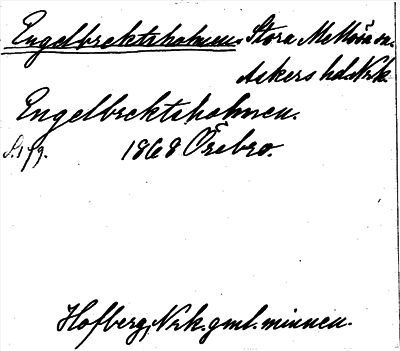 Engelbrektsholmen. Stora Mellösa sn.
Askers hd. Nrk.
Engelbrektsholmen.
S. 1 fg. 1868 Örebro.
Hofberg, Nrk. gml. minnen.